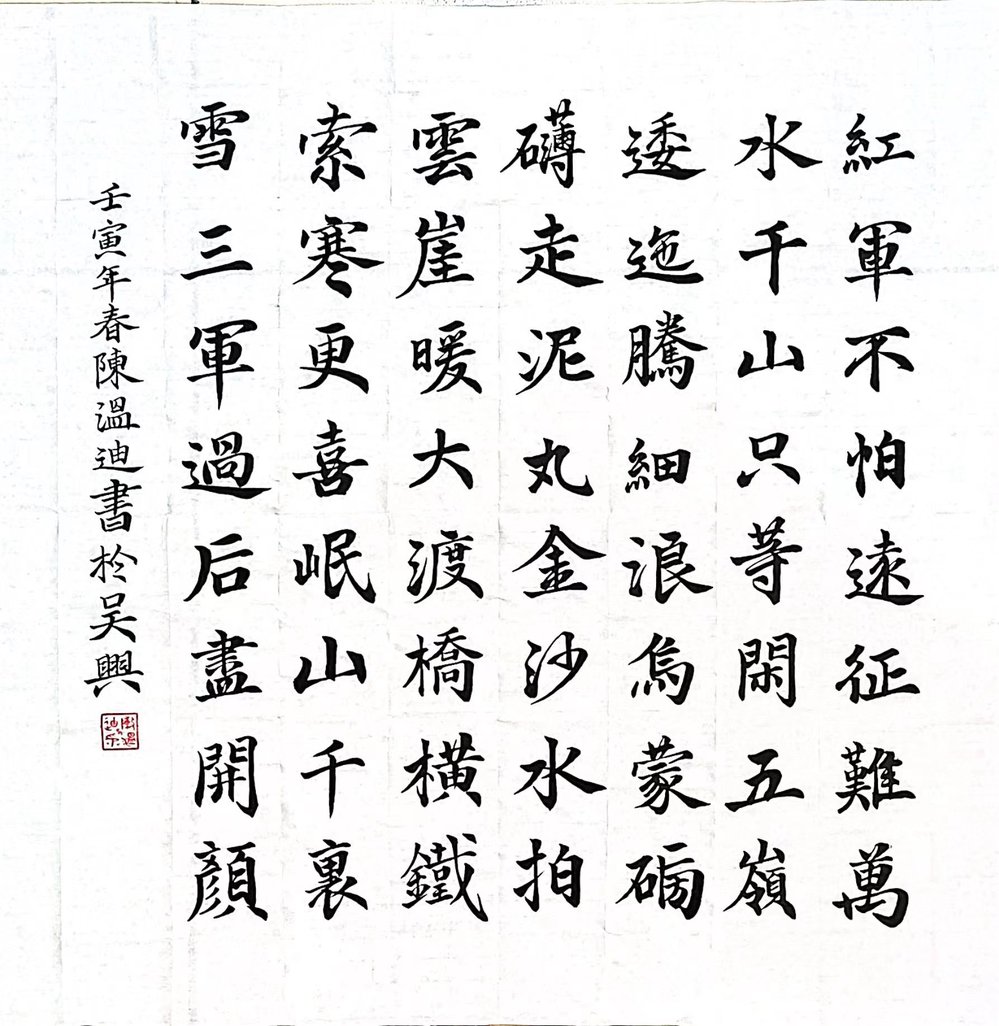 紅軍不怕遠征難萬
水千山只等閑五嶺
逶迤騰細浪烏蒙磅
礴走泥丸金沙水拍
雲崖暖大渡橋横鐵
索寒更喜岷山千裏
雪三軍過后盡開顔
壬寅年春陳溫迪書於吳興